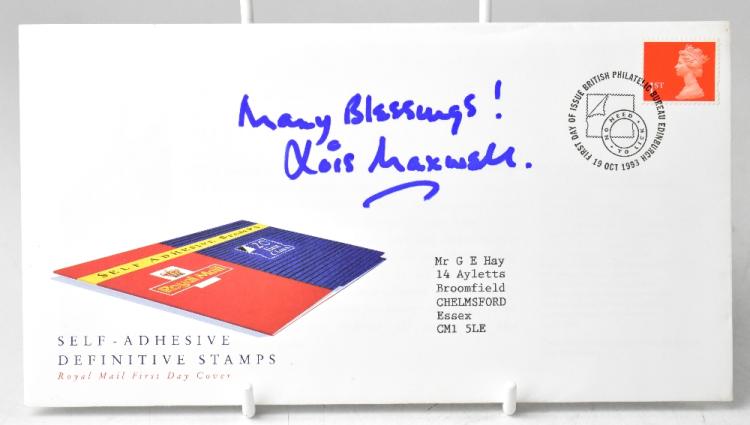 Many Blessings!
Lois Maxwell.
1ST
FIRST DAY OF ISSUE BRITISH PHILATELIC BUREAU EDINBURGH
19 OCT 1993
NO NEED TO LICK
SELF ADHESIVE STAMPS
25
Royal Mail
Mr G E Hay
14 Ayletts
Broomfield
CHELMSFORD
Essex
CM1 5LE
SELF-ADHESIVE
DEFINITIVE STAMPS
Royal Mail First Day Cover